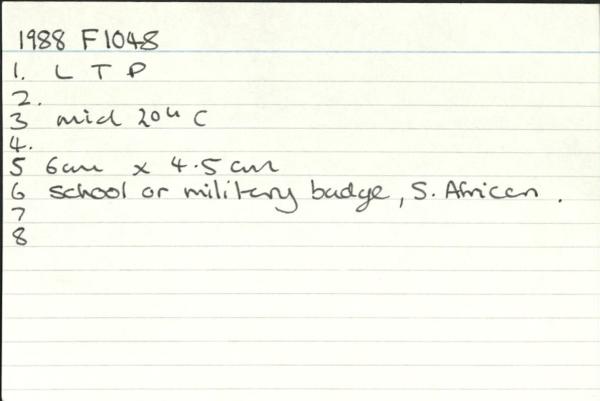 1988 F1048
1. L T P
2.
3 mid 20th C
4.
5 6cm x 4.5 cm
6 school or military badge, S. African.
7
8